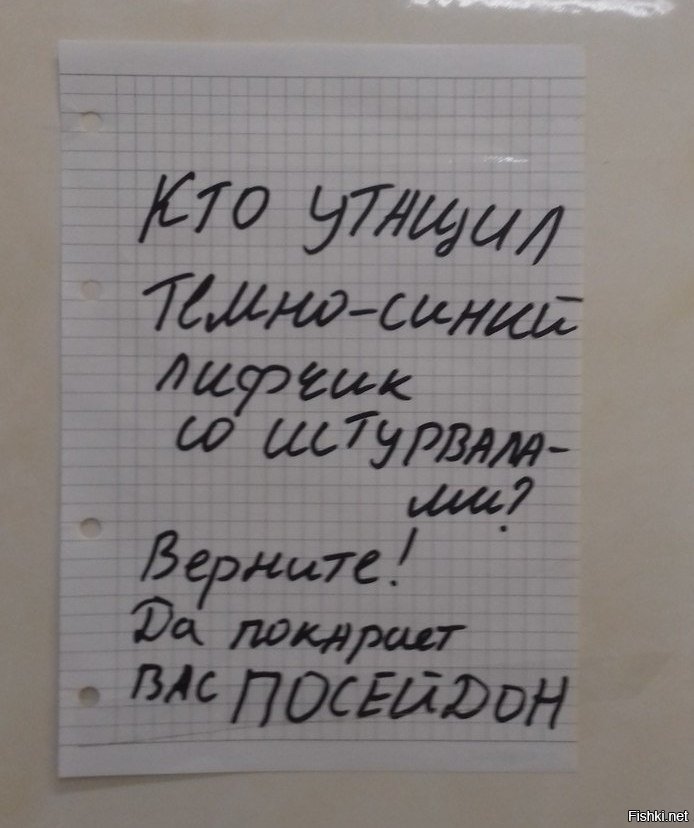 Кто утащил
темно-синий
лифчик
со штурвала-
ми?
Верните!
Да покарает
вас ПОСЕЙДОН
Fishki.net